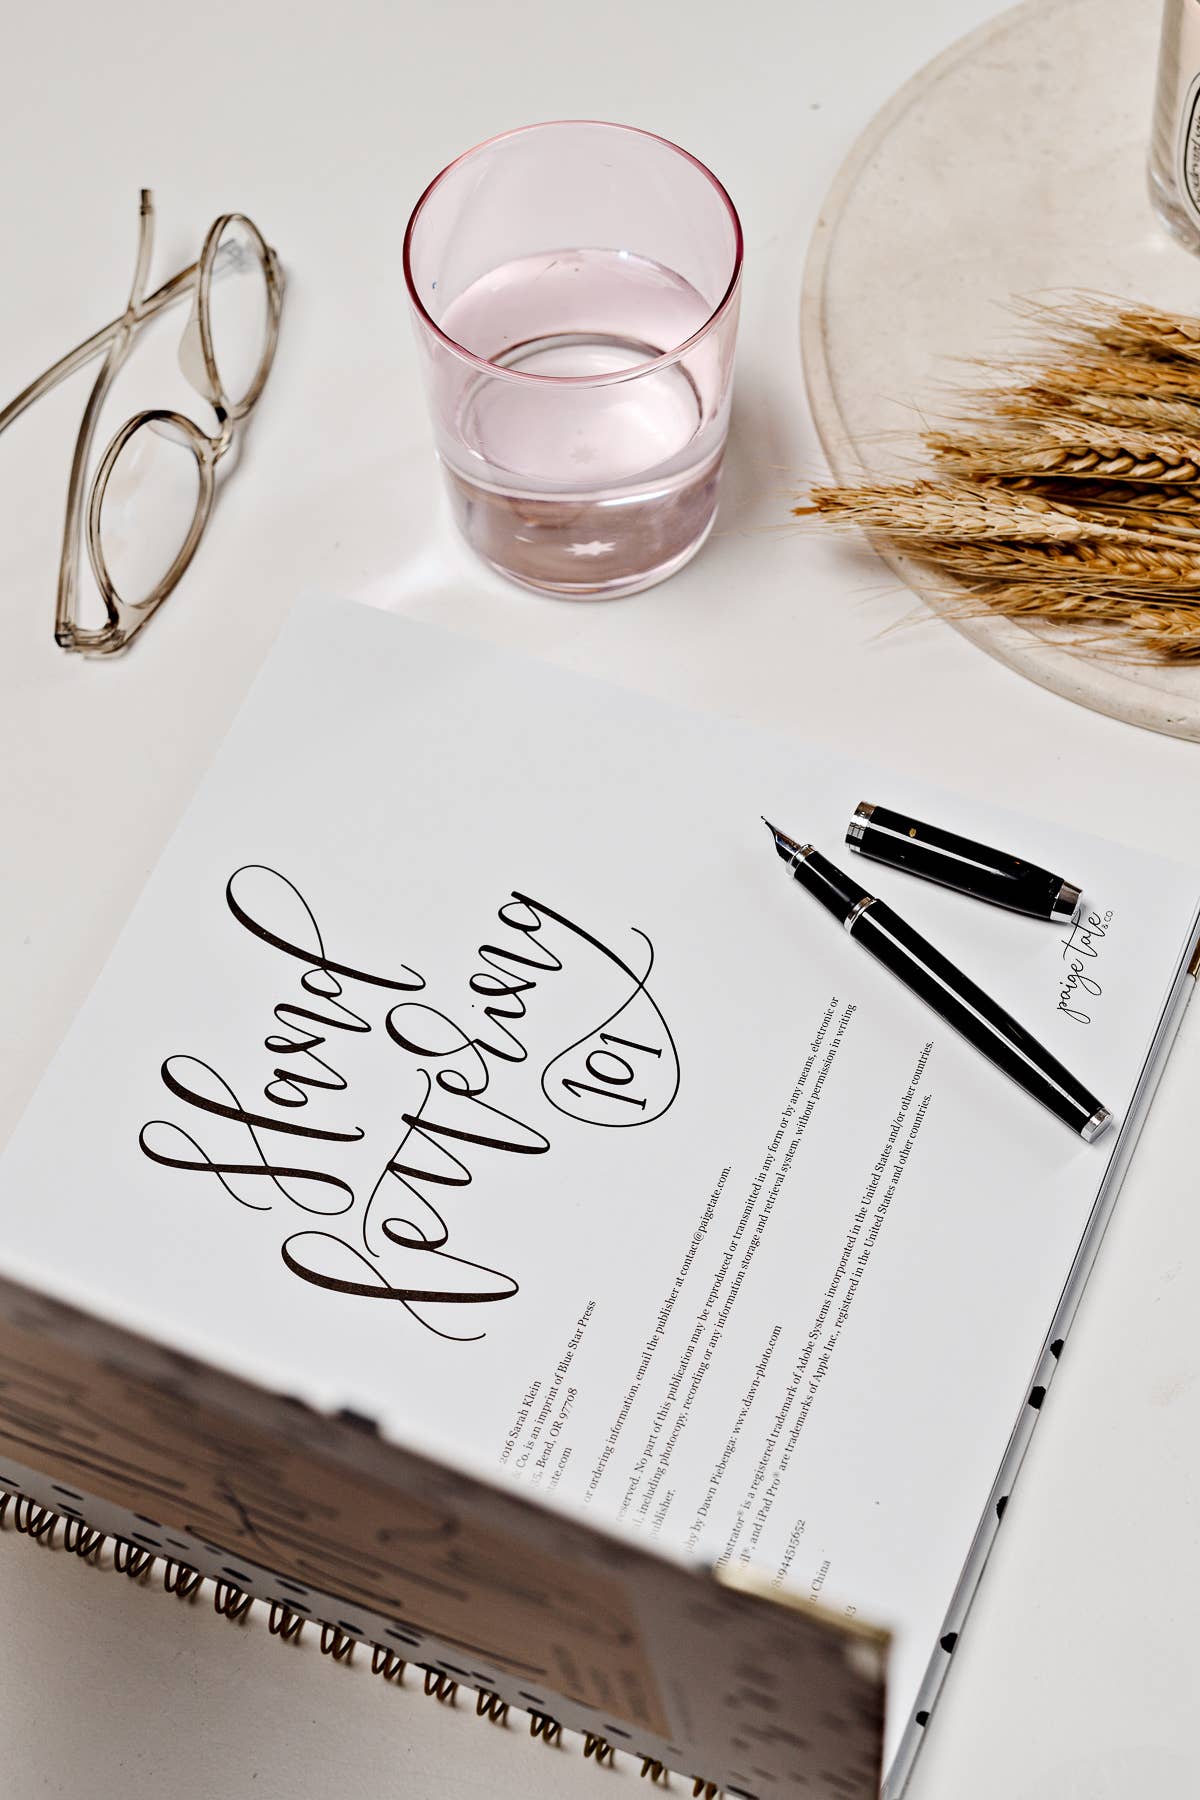 Hand
Lettering
101
paige tate
& CO.
2016 Sarah Klein
& Co. is an imprint of Blue Star Press
35, Bend, OR 97708
tate.com
or ordering information, email the publisher at contact@paigetate.com.
reserved. No part of this publication may be reproduced or transmitted in any form or by any means, electronic or
al, including photocopy, recording or any information storage and retrieval system, without permission in writing
publisher.
phy by Dawn Piebenga: www.dawn-photo.com
Illustrator® is a registered trademark of Adobe Systems incorporated in the United States and/or other countries.
cil®, and iPad Pro® are trademarks of Apple Inc., registered in the United States and other countries.
81944515652
n China
13